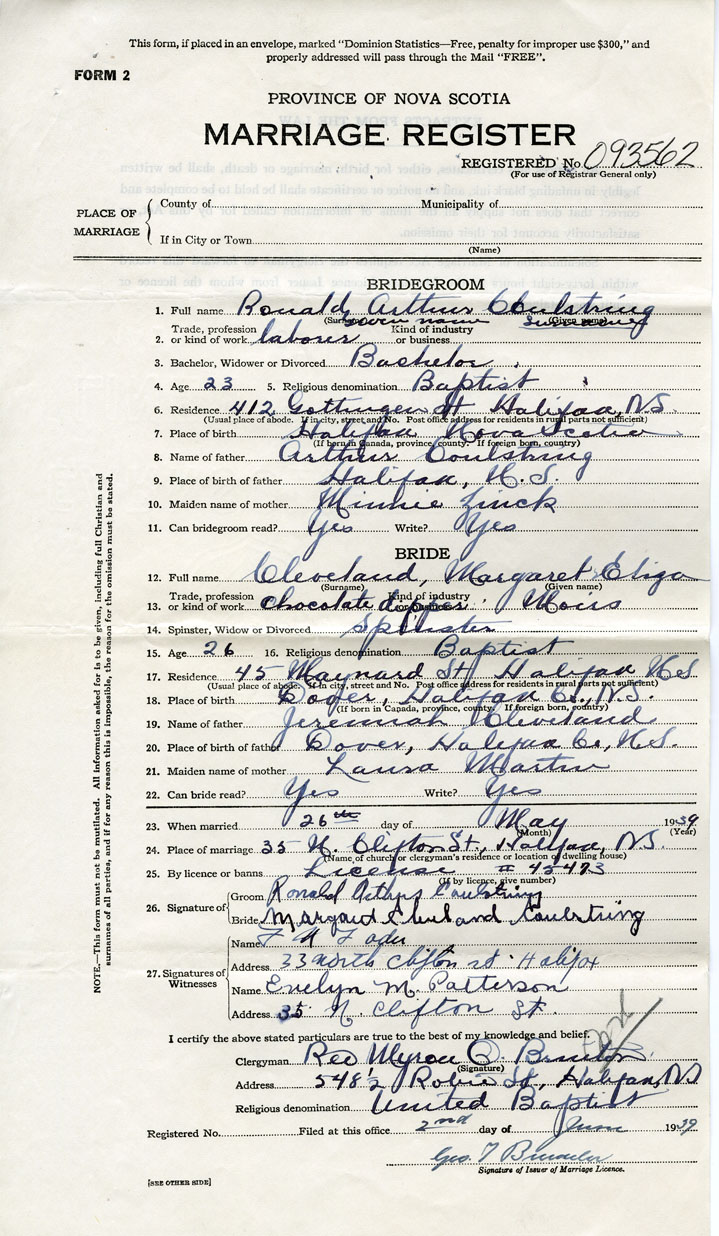 This form, if placed in an envelope, marked "Dominion Statistics—Free, penalty for improper use $300," and
properly addressed will pass through the Mail "FREE".
FORM 2
PROVINCE OF NOVA SCOTIA
MARRIAGE REGISTER
REGISTERED No. 093562
(For use of Registrar General only)
PLACE OF MARRIAGE
County of Municipality of
If in City or Town
(Name)
BRIDEGROOM
1. Full name Ronald Arthur Coulstring
(Surname) given name (Given name) surname
Trade, profession Kind of industry
2. or kind of work laborer or business
3. Bachelor, Widower or Divorced Bachelor
4. Age 23 5. Religious denomination Baptist
6. Residence 412 Gottingen St Halifax, N.S.
(Usual place of abode. If in city, street and No. Post office address for residents in rural parts not sufficient)
7. Place of birth Halifax Nova Scotia
(If born in Canada, province, county. If foreign born, country)
8. Name of father Arthur Coulstring
9. Place of birth of father Halifax, N.S.
10. Maiden name of mother Minnie Zinck
11. Can bridegroom read? Yes Write? Yes
BRIDE
12. Full name Cleveland, Margaret Eliza
(Surname) (Given name)
Trade, profession Kind of industry
13. or kind of work chocolate dipper or business Moirs
14. Spinster, Widow or Divorced Spinster
15. Age 26 16. Religious denomination Baptist
17. Residence 45 Maynard St, Halifax N.S.
(Usual place of abode. If in city, street and No. Post office address for residents in rural parts not sufficient)
18. Place of birth Dover, Halifax Co., N.S.
(If born in Canada, province, county. If foreign born, country)
19. Name of father Jeremiah Cleveland
20. Place of birth of father Dover, Halifax Co, N.S.
21. Maiden name of mother Laura Martin
22. Can bride read? Yes Write? Yes
23. When married 26th day of May 1939
(Month) (Year)
24. Place of marriage 35 N. Clifton St., Halifax, N.S.
(Name of church or clergyman's residence or location of dwelling house)
25. By licence or banns License # 45473
(If by licence, give number)
26. Signature of
Groom Ronald Arthur Coulstring
Bride Margaret Cleveland Coulstring
27. Signatures of Witnesses
Name
Address 33 north Clifton st. Halifax
Name Evelyn M. Patterson
Address 35 N. Clifton St.
I certify the above stated particulars are true to the best of my knowledge and belief.
Clergyman Rev Myron O. Brinton
(Signature)
Address 548½ Robie St, Halifax, N.S
Religious denomination United Baptist
Registered No. Filed at this office 2nd day of June 1939
Geo. T
Signature of Issuer of Marriage Licence.
[SEE OTHER SIDE]
NOTE.—This form must not be mutilated. All information asked for is to be given, including full Christian and
surnames of all parties, and if for any reason this is impossible, the reason for the omission must be stated.